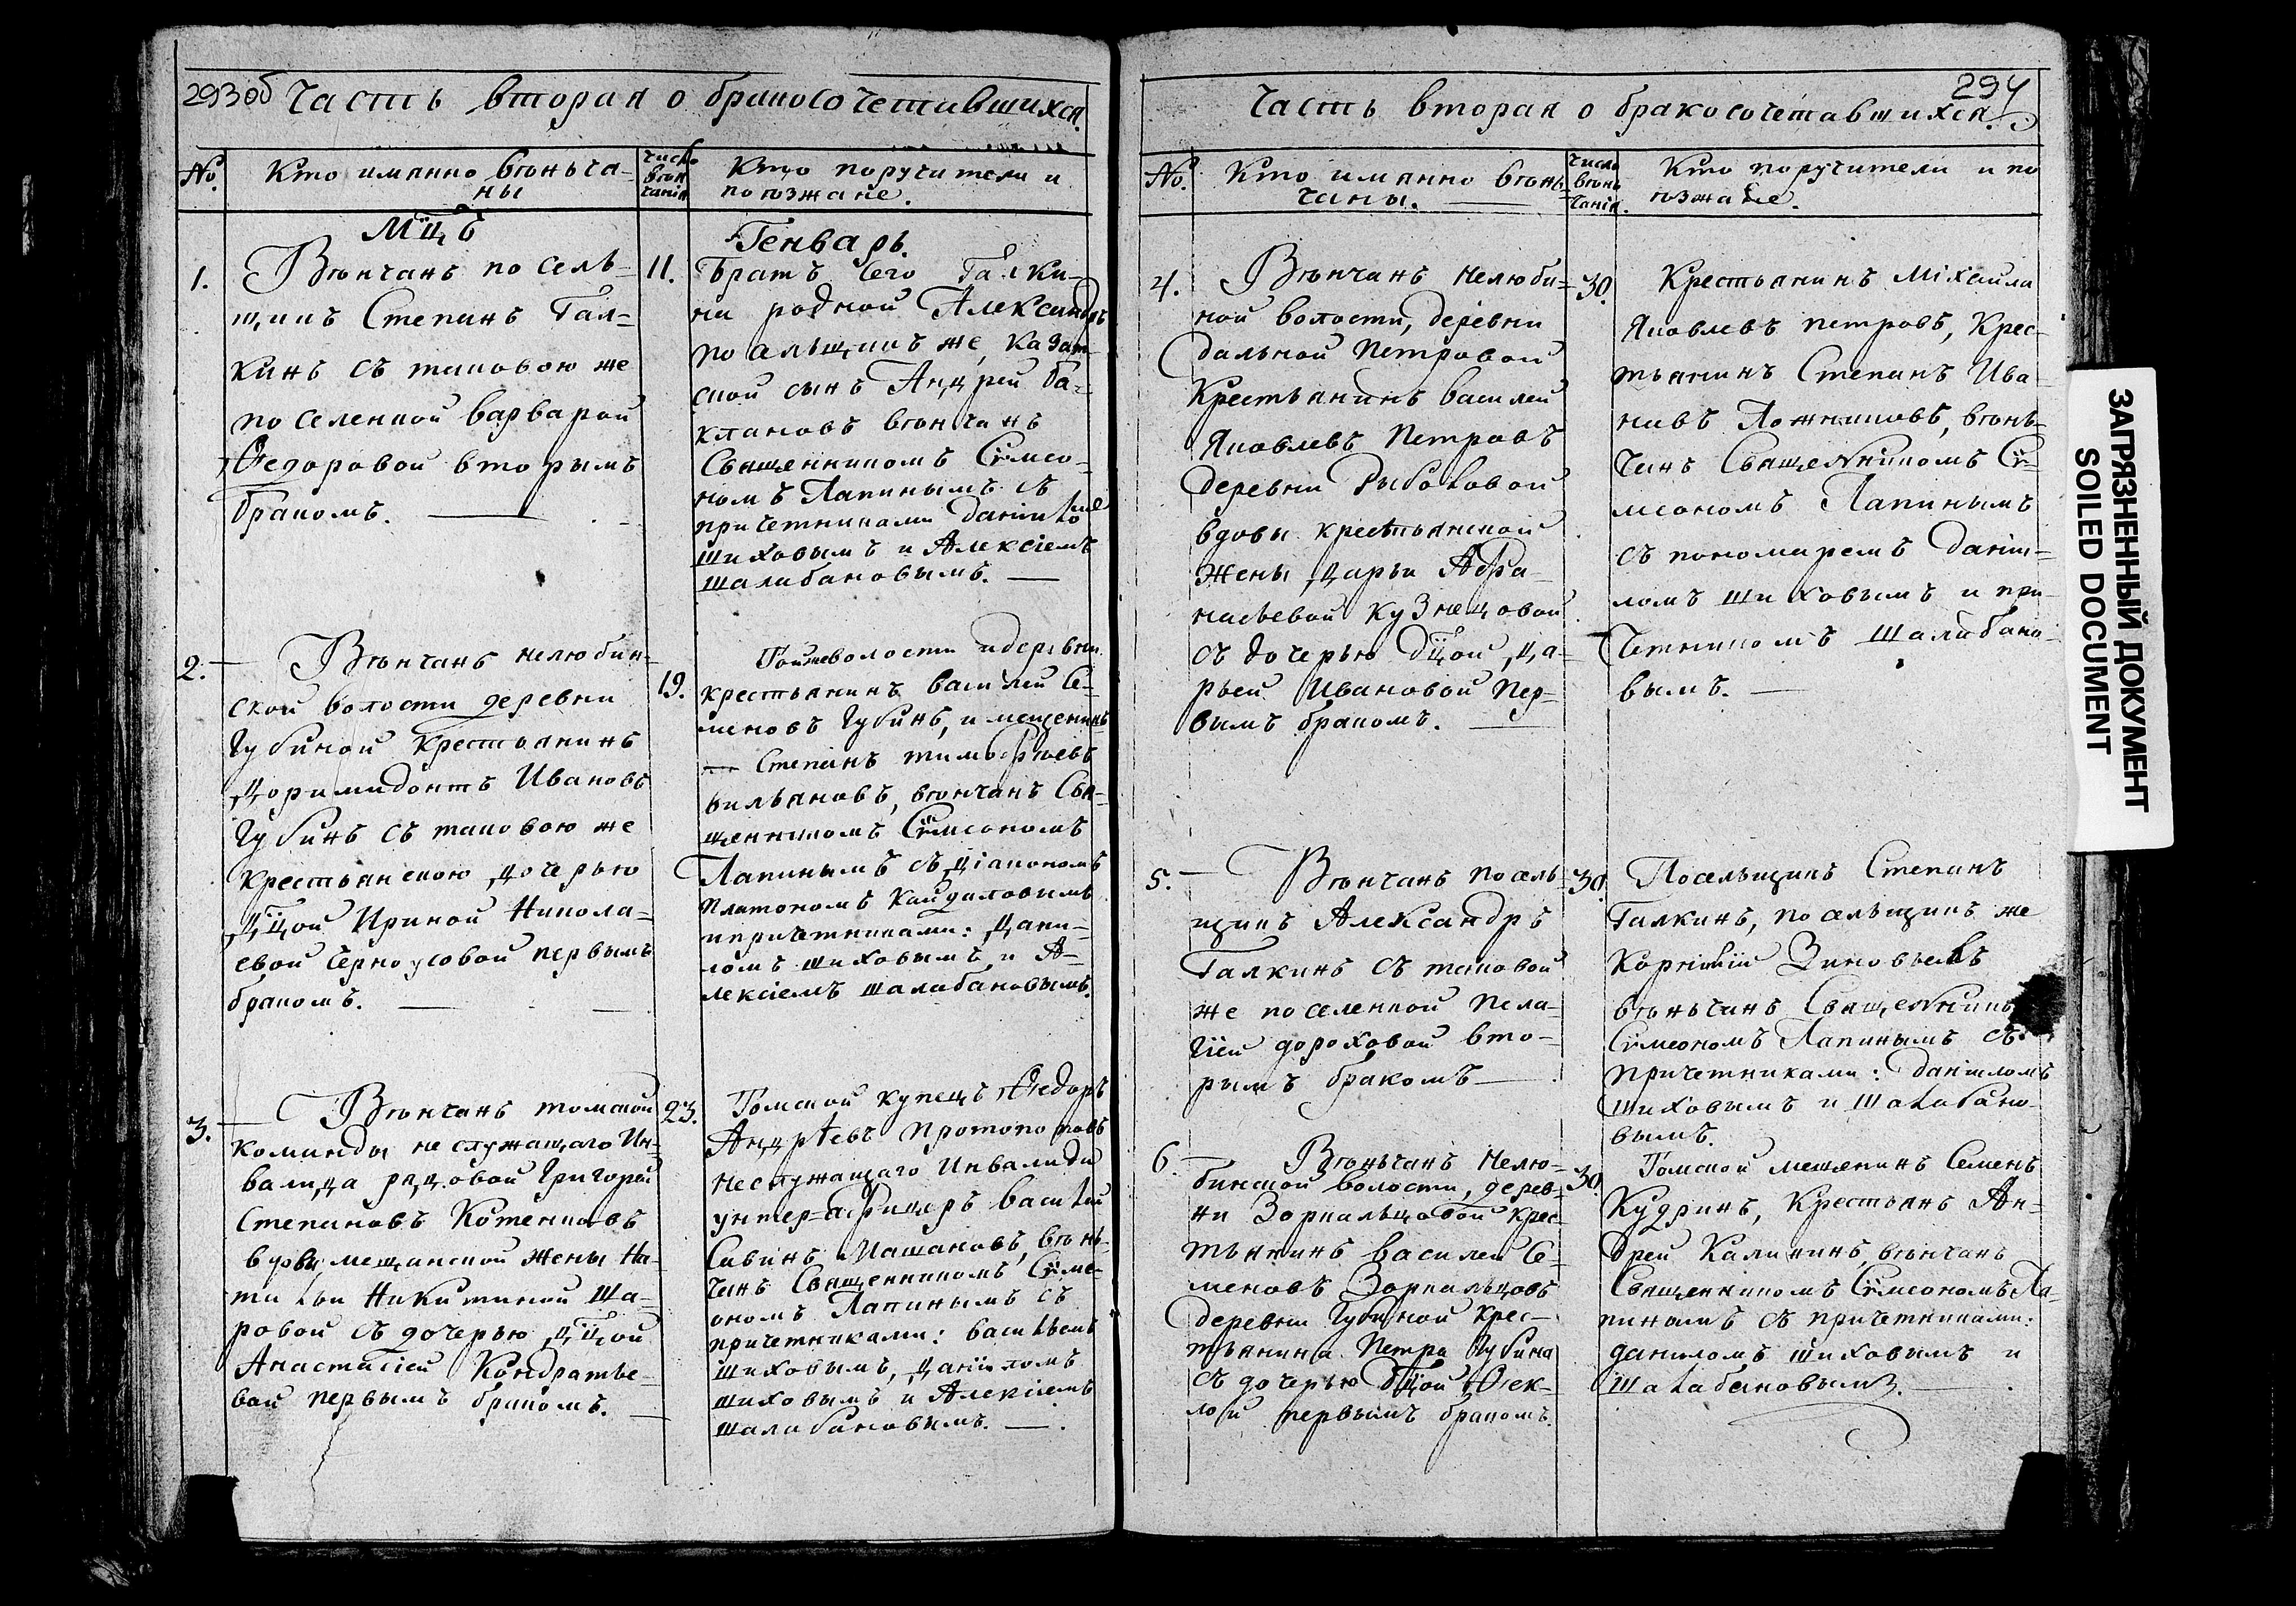 293об Часть вторая о бракосочетавшихся.
№. Кто имянно веньча-
ны
число
вѣн
чанія
Кто поручители и
поѣзжане.
Мцъ Генварь.
1. Вѣнчанъ посель-
щикъ Степанъ Гал-
кинъ съ таковою же
поселенной Варварой
Ѳедоровой вторымъ
бракомъ.
11. Братъ Его Галки-
на родной Александръ
посельщикъ же, казат-
ской сынъ Андрей Ба-
клановъ вѣнчанъ
Священникомъ Сѵмео-
номъ Лапинымъ съ
причетниками Даниломъ
Шиховымъ и Алексіемъ
Шалабановымъ.
2. Вѣнчанъ Нелюбин-
ской волости деревни
Губиной крестьянинъ
Доримидонтъ Ивановъ
Губинъ съ таковою же
крестьянскою дочерью
дѣцой Ириной Никола-
евой Черноусовой первымъ
бракомъ.
19. Той же волости и деревни
крестьянинъ Василей Се-
меновъ Губинъ, и мещенинъ
Степанъ Тимофѣевъ
Вильяновъ, вѣнчанъ Свя-
щенникомъ Сѵмеономъ
Лапинымъ съ діакономъ
Платономъ Кайдаловымъ
и причетниками: Дани-
ломъ Шиховымъ и А-
лексіемъ Шалабановымъ.
3. Вѣнчанъ томской
команды неслужащаго Ин-
валида рядовой Григорей
Степановъ Котениковъ
вдовы мещанской жены На-
тальи Никитиной Ша-
ровой съ дочерью дѣцой
Анастасіей Кондратье-
вой первымъ бракомъ.
23. Томской купецъ Ѳедоръ
Андрѣевъ Протопоповъ
Неслужащаго Инвалида
унтер-афицеръ Василей
Савинъ Машановъ, вѣнь-
чанъ Священникомъ Сѵме-
ономъ Лапинымъ съ
причетниками: Васильемъ
Шиховымъ, Даніиломъ
Шиховымъ и Алексіемъ
Шалабановымъ.
294
Часть вторая о бракосочетавшихся.
№. Кто имянно вѣнь-
чаны.
Число
вѣнь
чанія.
Кто поручители и по
ѣзжане.
4. Вѣнчанъ Нелюби-
ной волости, деревни
Дальной Петровой
Крестьянинъ Василей
Яковлевъ Петровъ
деревни Рыболовой
вдовы крестьянской
жены Дарьи Афа-
насьевой Кузнецовой
съ дочерью дѣцой Да-
рьей Ивановой пер-
вымъ бракомъ.
30. Крестьянинъ Міхаила
Яковлевъ Петровъ, Крес-
тьянинъ Степанъ Ива-
новъ Ложниковъ, вѣнь-
чанъ Священникомъ Сѵ-
меономъ Лапинымъ
съ пономаремъ Даніи-
ломъ Шиховымъ и при-
четникомъ Шалабано-
вымъ.
5. Вѣнчанъ посель-
щикъ Александръ
Галкинъ съ таковой
же поселенной Пела-
гіей Дороховой вто-
рымъ бракомъ
30. Посельщикъ Степанъ
Галкинъ, посельщикъ же
Корнилій Зиновьевъ
вѣньчанъ Священникъ
Сѵмеономъ Лапинымъ съ
причетниками: Даніиломъ
Шиховымъ и Шалабано-
вымъ.
6. Вѣньчанъ Нелю-
бинской волости, дерев-
ни Зоркальцовой крес-
тьянинъ Василей Се-
меновъ Зоркальцовъ
деревни Губиной крес-
тьянина Петра Губина
съ дочерью дѣцой Ѳек-
лой первымъ бракомъ.
30. Томской мещенинъ Семенъ
Кудринъ, Крестьянъ Ан-
дрей Калининъ, вѣнчанъ
Священникомъ Сѵмеономъ Ла-
пиномъ съ причетниками:
Даниломъ Шиховымъ и
Шалабановымъ.
ЗАГРЯЗНЕННЫЙ ДОКУМЕНТ
SOILED DOCUMENT